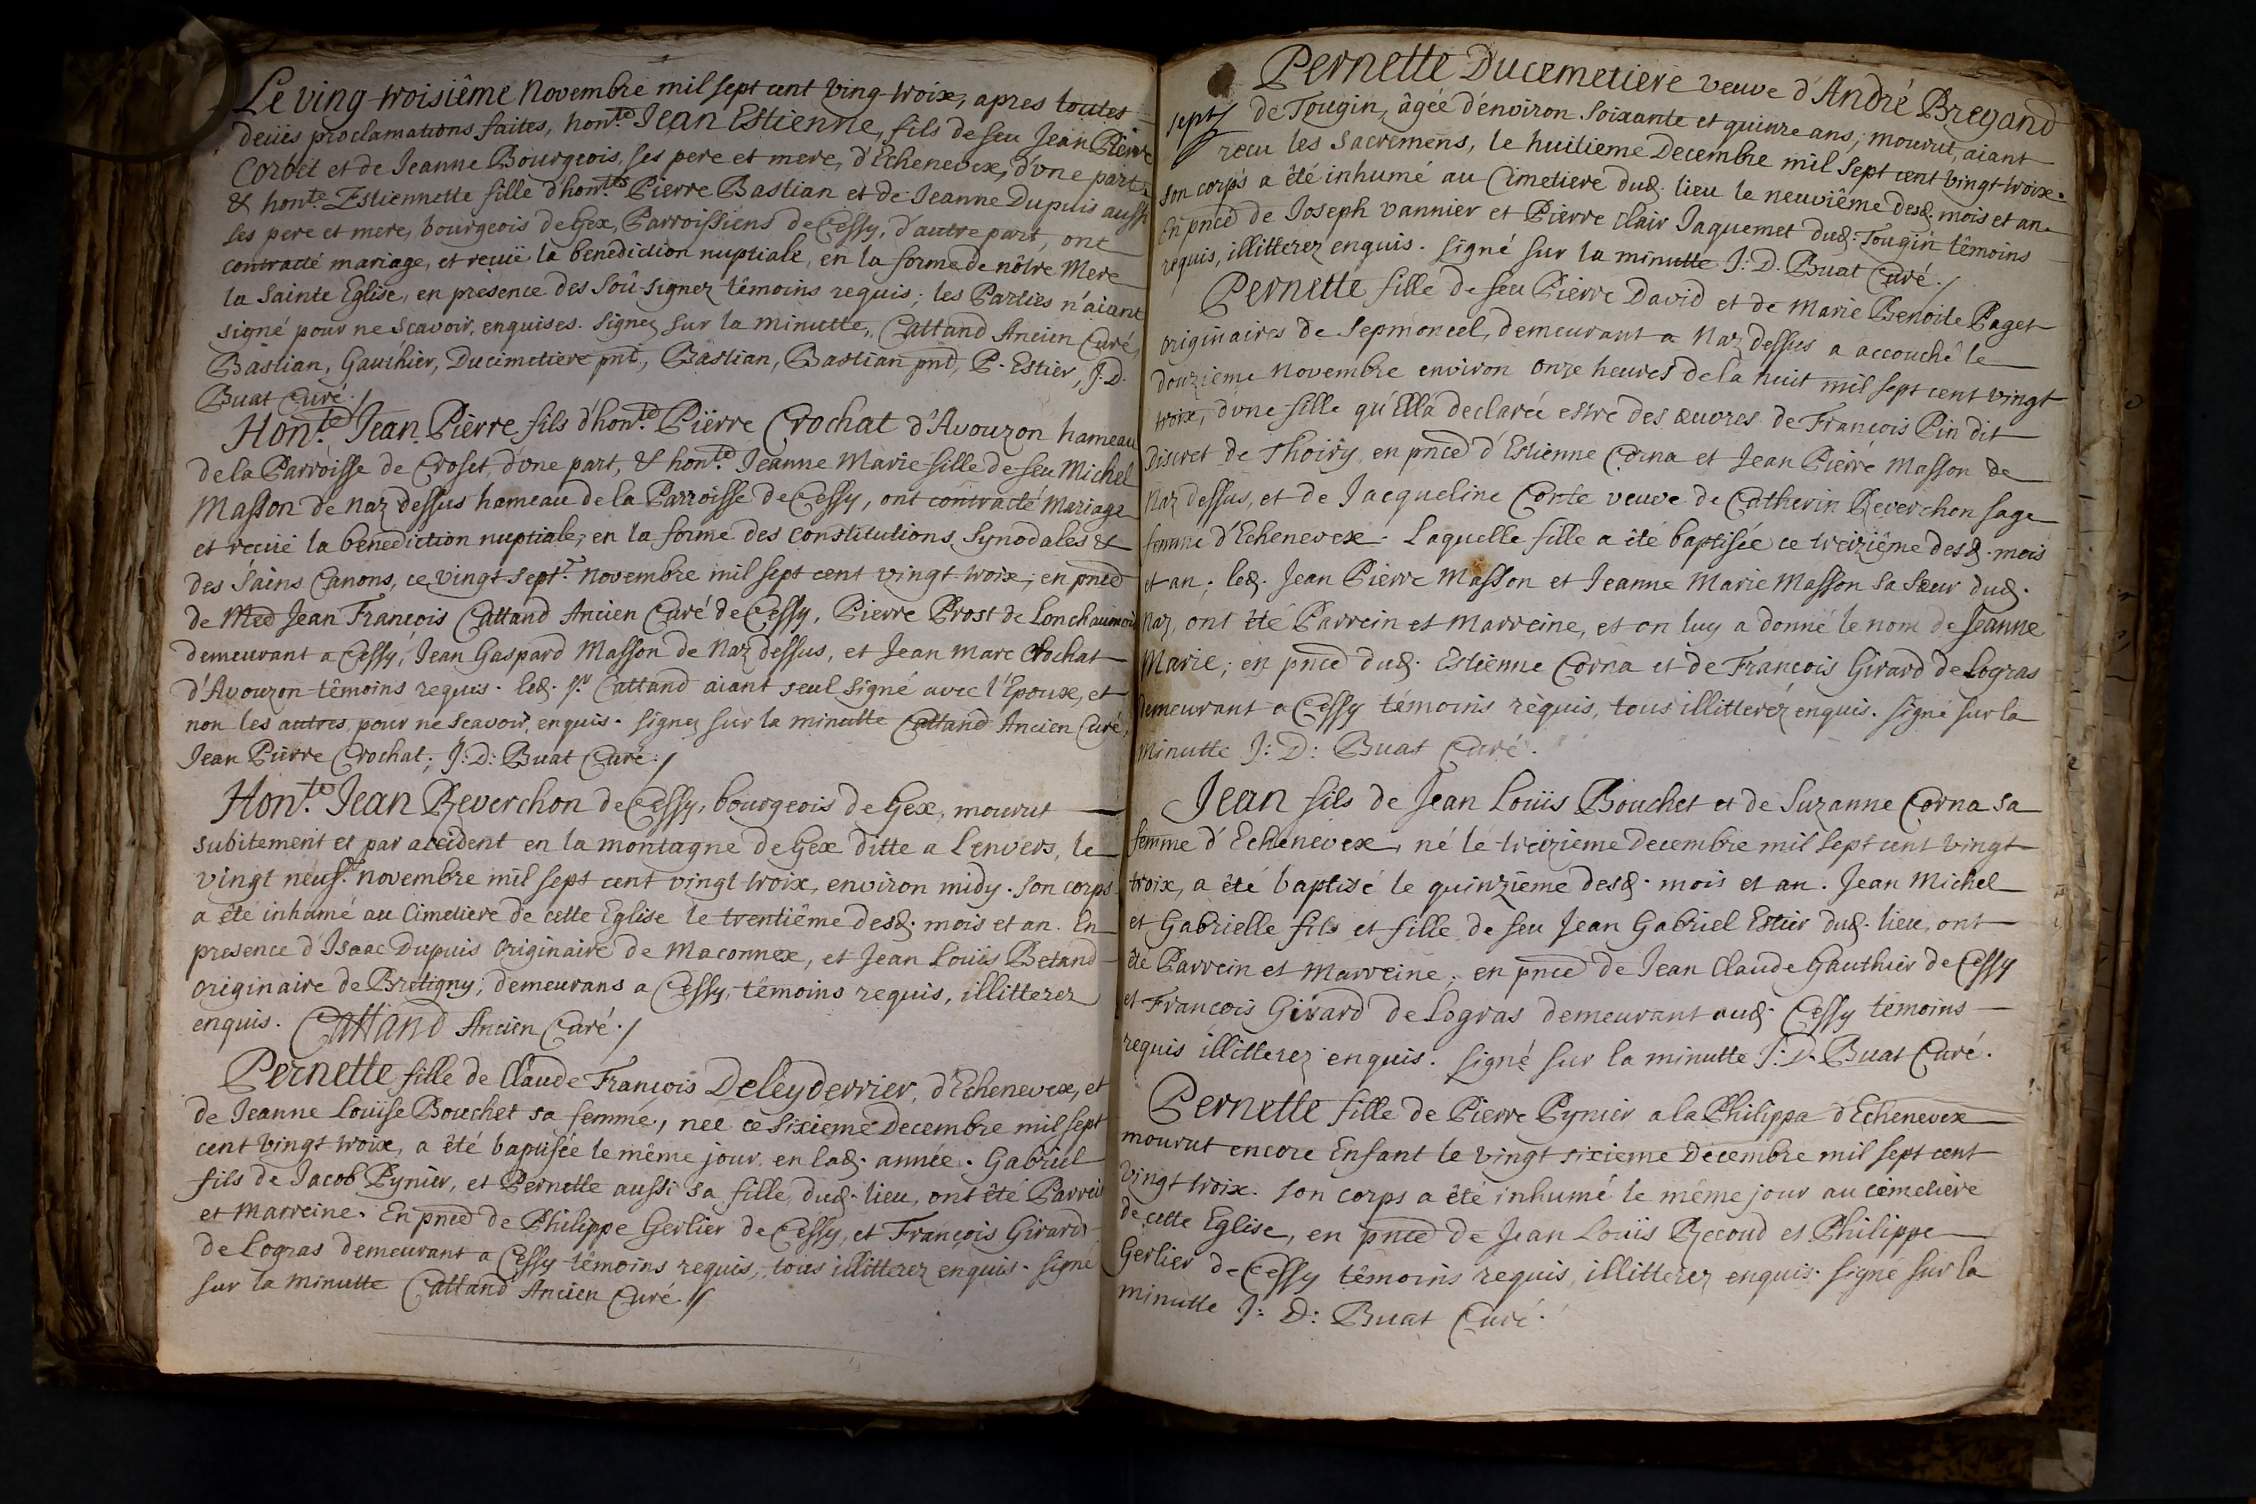 Le ving-troisiême Novembre mil sept cent ving-troix, apres toutes
deües proclamations faites, hon.te Jean Estienne, fils de feu Jean Pierre
Corbet et de Jeanne Bourgeois, ses pere et mere, d'Echenevex, d'une part,
& hon.te Estiennette fille d'hon.tes Pierre Bastian et de Jeanne Dupuis aussi
ses pere et mere, bourgeois de Gex, Parroissiens de Cessy, d'autre part, ont
contracté mariage, et reçuë la benediction nuptiale, en la forme de nôtre Mere
la Sainte Eglise, en presence des Soû-signez têmoins requis; les Parties n'aiant
signé pour ne scavoir, enquises. signez sur la minutte, Cattand Ancien Curé,
Bastian, Gauthier, Ducimetiere pnt, Bastian, Bastian pnt, P. Estier, J. D.
Buat Curé./
Hon.te Jean Pierre fils d'hon.te Pierre Crochat d'Avouzon hameau
de la Parroisse de Croset, d'une part, & hon.te Jeanne Marie fille de feu Michel
Masson de Naz dessus hameau de la Parroisse de Cessy, ont contracté Mariage
et recuë la benediction nuptiale, en la forme des constitutions Synodales &
des Sains Canons, ce vingt sept.e novembre mil sept cent vingt troix; en pnce
de Mre Jean François Cattand Ancien Curé de Cessy, Pierre Prost de Lonchaumois
demeurant a Cessy, Jean Gaspard Masson de Naz dessus, et Jean Marc Crochat
d'Avouzon têmoins requis. led. Sr Cattand aiant seul signé avec l'Epoux, et
non les autres, pour ne scavoir, enquis. signez sur la minutte Cattand Ancien Curé,
Jean Pierre Crochat; J: D: Buat Curé./
Hon.te Jean Reverchon de Cessy, bourgeois de Gex, mourut
subitement et par accident en la montagne de Gex ditte a Lenvers, le
vingt neuf.e novembre mil sept cent vingt troix, environ midy. son corps
a été inhumé au Cimetiere de cette Eglise le trentiême desd. mois et an. En
presence d'Isaac Dupuis originaire de Maconnex, et Jean Louïs Betand
originaire de Bretigny, demeurans a Cessy, têmoins requis, illitterez
enquis. Cattand Ancien Curé./
Pernette fille de Claude François Deleyderrier, d'Echenevex, et
de Jeanne Louïse Bouchet sa femme, neé ce sixieme Decembre mil sept
cent vingt troix, a été baptisée le même jour en lad. année. Gabriel
fils de Jacob Pynier, et Pernette aussi sa fille dud. lieu, ont êté Parrein
et Marreine. En pnce de Philippe Gerlier de Cessy, et François Girard
de Logras demeurant a Cessy têmoins requis, tous illitterez enquis. signé
sur la minutte Cattand Ancien Curé.//
Pernette Ducemetiere veuve d'André Bregand
sept/ de Tougin, âgée d'environ soixante et quinze ans, mourut, aiant
recu les Sacremens, le huitieme Decembre mil sept cent vingt-troix.
son corps a été inhumé au Cimetiere dud. lieu le neuviême desd. mois et an.
En pnce de Joseph Vannier et Pierre Clair Jaquemet dud. Tougin têmoins
requis, illitterez enquis. signé sur la minutte J: D. Buat Curé./
Pernette fille de feu Pierre David et de Marie Benoite Paget
originaires de Sepmoncel, demeurant a Naz dessus a accouché le
douzieme Novembre environ onze heures de la nuit mil sept cent vingt
troix, d'une fille qu'Ella declarée estre des œuvres de François Pin dit
Discret de Thoiry, en pnce d'Estienne Corna et Jean Pierre Masson de
Naz dessus, et de Jacqueline Conte veuve de Catherin Reverchon sage
femme d'Echenevex. Laquelle fille a été baptisée ce treiziême desd. mois
et an. led. Jean Pierre Masson et Jeanne Marie Masson sa Sœur dud.
Naz, ont été Parrein et Marreine, et on luy a donné le nom de Jeanne
Marie; en pnce dud. Estienne Corna et de François Girard de Logras
demeurant a Cessy témoins rèquis, tous illitterez enquis. signé sur la
Minutte J: D: Buat Curé.
Jean fils de Jean Louïs Bouchet et de Suzanne Corna sa
femme d'Echenevex, né le treizieme Decembre mil sept cent vingt
troix, a été baptisé le quinzieme desd. mois et an. Jean Michel
et Gabrielle fils et fille de feu Jean Gabriel Estier dud. lieu, ont
êté Parrein et Marreine; en pnce de Jean Claude Gauthier de Cessy
et François Girard de Logras demeurant aud. Cessy têmoins
requis illitterez enquis. signé sur la minutte J: D. Buat Curé.
Pernette fille de Pierre Pynier a la Philippa d'Echenevex
mourut encore Enfant le vingt sixieme Decembre mil sept cent
vingt troix. son corps a êté inhumé le même jour au cémetiere
de cette Eglise, en pnce de Jean Louïs Recoud et Philippe
Gerlier de Cessy têmoins requis, illitterez enquis. signé sur la
minutte J: D: Buat Curé.